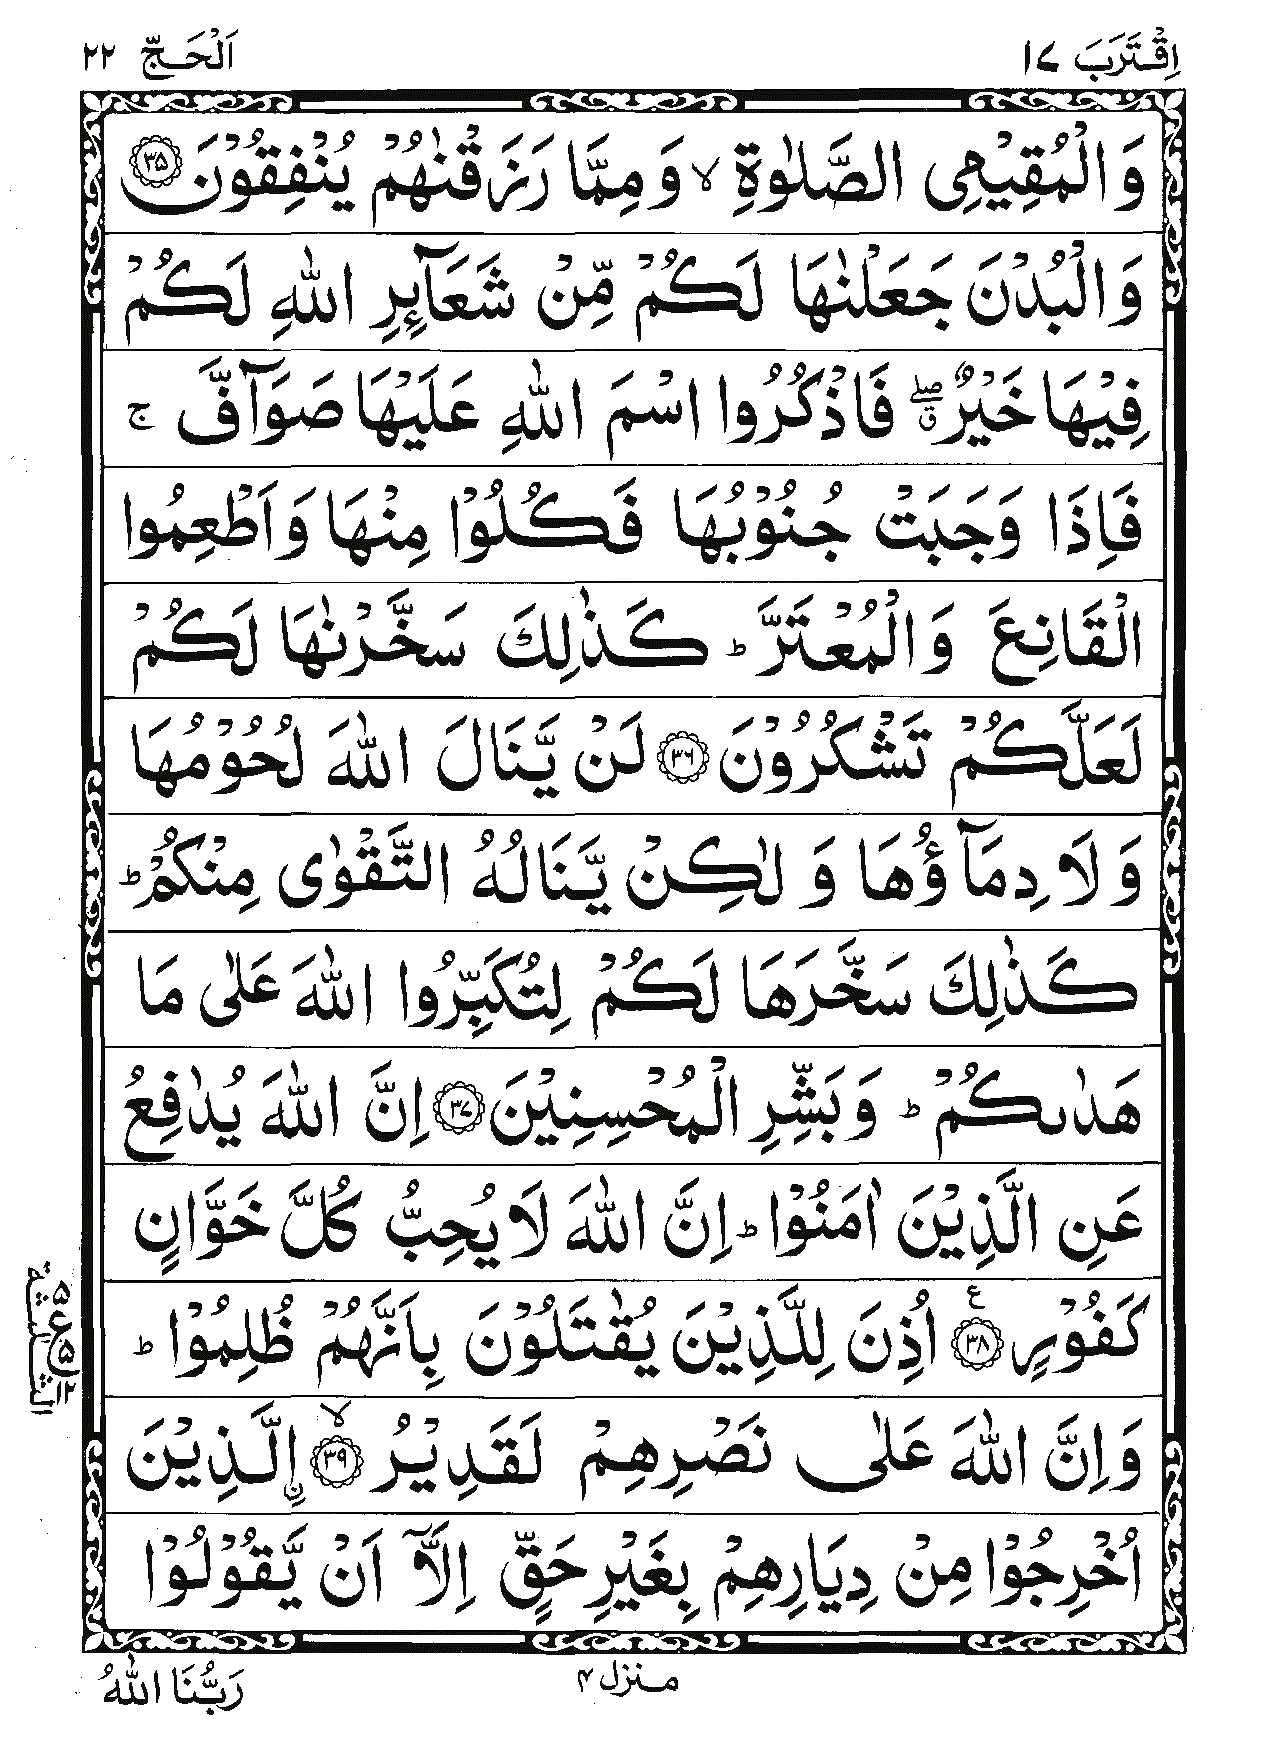 اِقْتَرَبَ ۱۷
اَلْحَجّ ۲۲
وَالْمُقِيْمِى الصَّلٰوةِ ۙ وَمِمَّا رَزَقْنٰهُمْ يُنْفِقُوْنَ ﴿۳۵﴾
وَالْبُدْنَ جَعَلْنٰهَا لَكُمْ مِّنْ شَعَآئِرِ اللّٰهِ لَكُمْ
فِيْهَا خَيْرٌ ۖ ق فَاذْكُرُوا اسْمَ اللّٰهِ عَلَيْهَا صَوَآفَّ ج
فَاِذَا وَجَبَتْ جُنُوْبُهَا فَكُلُوْا مِنْهَا وَاَطْعِمُوا
الْقَانِعَ وَالْمُعْتَرَّ ط كَذٰلِكَ سَخَّرْنٰهَا لَكُمْ
لَعَلَّكُمْ تَشْكُرُوْنَ ﴿۳۶﴾ لَنْ يَّنَالَ اللّٰهَ لُحُوْمُهَا
وَلَا دِمَآؤُهَا وَلٰكِنْ يَّنَالُهُ التَّقْوٰى مِنْكُمْ ط
كَذٰلِكَ سَخَّرَهَا لَكُمْ لِتُكَبِّرُوا اللّٰهَ عَلٰى مَا
هَدٰىكُمْ ط وَبَشِّرِ الْمُحْسِنِيْنَ ﴿۳۷﴾ اِنَّ اللّٰهَ يُدٰفِعُ
عَنِ الَّذِيْنَ اٰمَنُوْا ط اِنَّ اللّٰهَ لَا يُحِبُّ كُلَّ خَوَّانٍ
كَفُوْرٍ ﴿۳۸﴾ ع اُذِنَ لِلَّذِيْنَ يُقٰتَلُوْنَ بِاَنَّهُمْ ظُلِمُوْا ط
وَاِنَّ اللّٰهَ عَلٰى نَصْرِهِمْ لَقَدِيْرُ ﴿۳۹﴾ ۙ اِۨلَّذِيْنَ
اُخْرِجُوْا مِنْ دِيَارِهِمْ بِغَيْرِ حَقٍّ اِلَّآ اَنْ يَّقُوْلُوْا
منزل ۴
رَبُّنَا اللّٰهُ